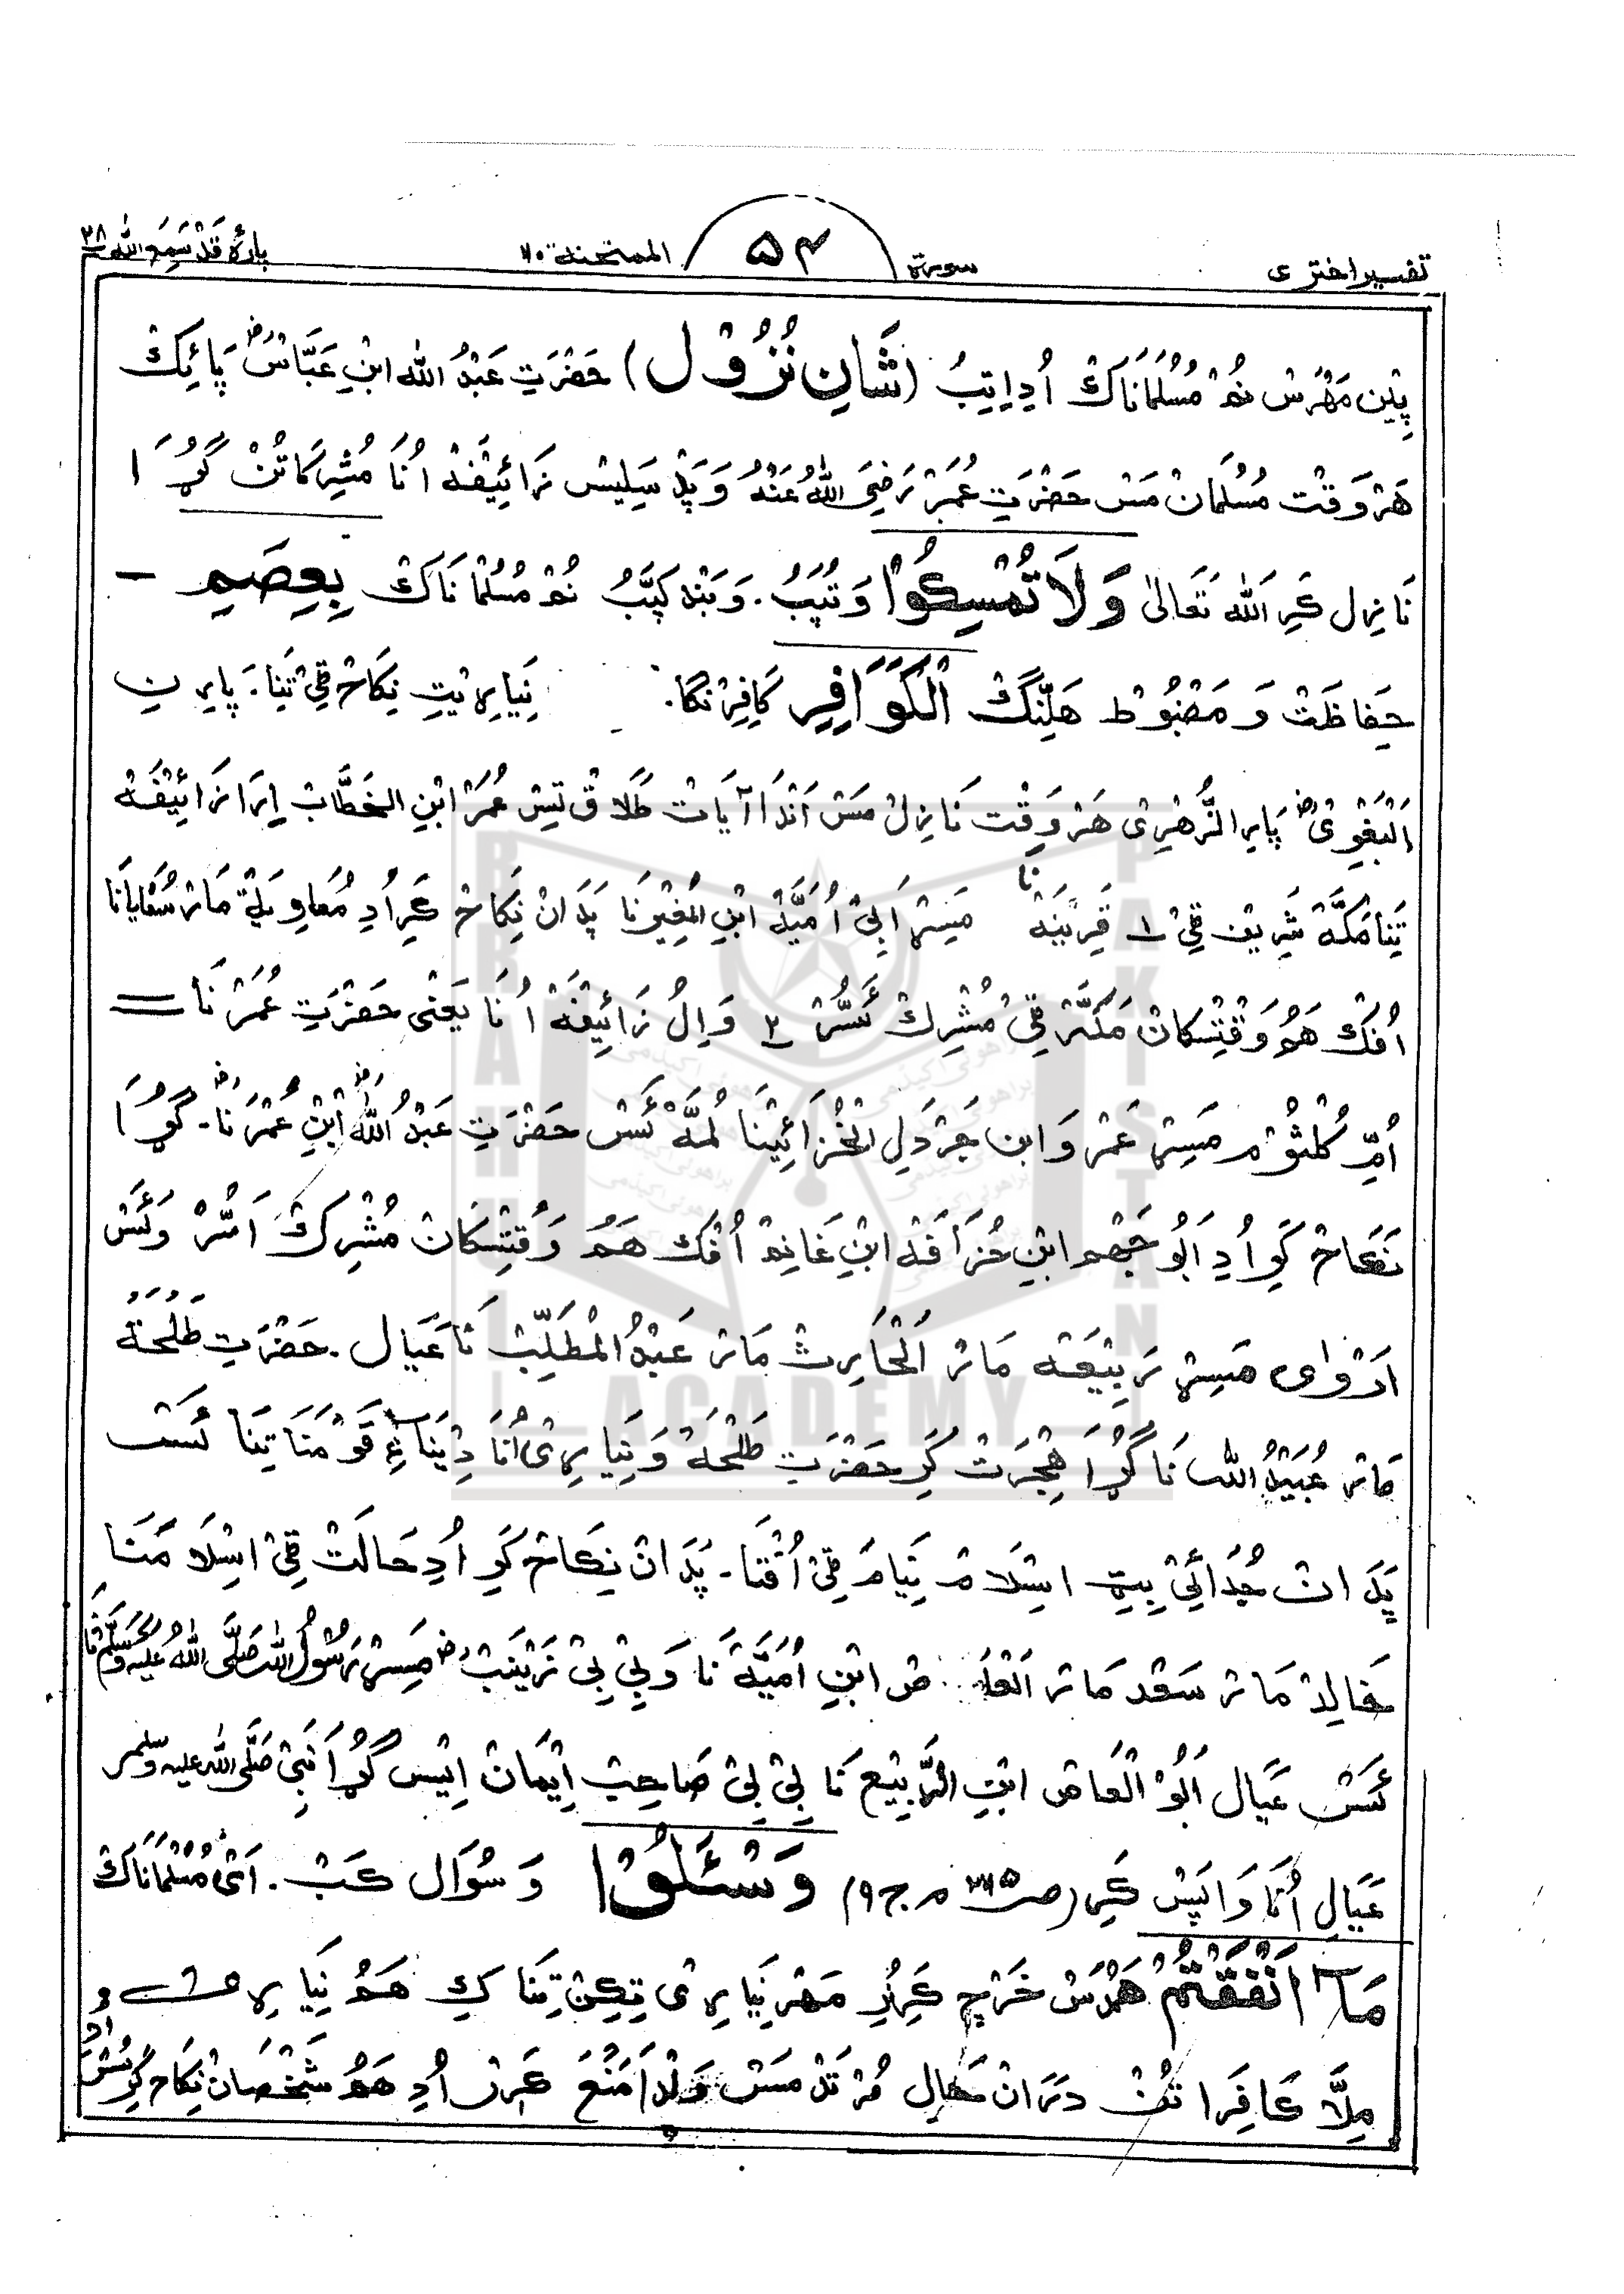 تفسیر اختری سورة ۵۴ الممتحنة ٦٠ پارۀ قَدْ سَمِعَ اللّٰه ۲۸
پِیْن مَهْرَس نُمْ مُسُلْمَانَاکْ اُدِ اِتِبُ (شَانِ نُزُوْل) حَضْرَتِ عَبْدُ اللّٰه ابْنِ عَبَّاسْ رض پَائِکْ
هَرْوَقْت مُسُلْمَانْ مَسْ حَضْرَتِ عُمَرْ رَضِیَ اللّٰهُ عَنْهُ وَ پَدْ سَلِیْس زَائِیْفَهْ اُنَا مُشْرِکَاتُنْ گُڑَا
نَازِل کَرِ اَللّٰه تَعَالیٰ وَلَا تُمْسِكُوْا وَ تُپَبُ. وَ بَنْد کَپَّبُ نُمْ مُسُلْمَانَاکْ بِعِصَمِ -
حِفَاظَتْ وَ مَضْبُوْط هَلِّنْگْ الْكَوَافِرِ کَافِرْنَکَا. نِیَاڑِیْتِ نِکَاحْ قِیْ تِنَا. پَارِنِ
اَلْبَغَوِی رح پَارِ الزُّهْرِیْ هَرْوَقْت نَازِلْ مَسْ اَنْدَا آیَاتْ طَلَاقْ تِسْ عُمَرْ ابْنِ الخَطَّابْ اِرَا زَائِیْفَهْ
تِنَا مَکَّهْ شَرِیْف قِیْ ۱ قَرِیْبَهْ نَا مَسِڑْ اَبِیْ اُمَیَّهْ ابْنِ المُغِیْرَنَا پَدَانْ نِکَاحْ کَرِ اُدِ مُعَاوِیَهْ مَارْ سُفْیَانَا
اُفْکْ هَمُوَقْتِسْکَانْ مَکَّهْ قِیْ مُشْرِکْ ئَسُّرْ ۲ وَ اِلُ زَائِیْفَهْ اُنَا یَعْنِی حَضْرَتِ عُمَرْ نَا
اُمِّ کُلْثُوْم مَسِڑْ عَمْر وَ ابن جَرْوَلِ الْخُزَائِیْنَا لُمَّهْ ئَسْ حَضْرَتِ عَبْدُ اللّٰه ابْنِ عُمَرْنَا. گُڑَا
نِکَاحْ کَرِ اُدِ اَبُو جَهْم ابْنِ حُزَافَهْ ابْنِ غَانِمْ اُفْکْ هَمُ وَقْتِسْکَانْ مُشْرِکْ اَسُّرْ وَ ئَسْ
اَرْوٰی مَسِڑْ رَبِیْعَهْ مَارْ اَلْحَارِثْ مَارْ عَبْدُ الْمُطَلِّبْ نَا عَیَال. حَضْرَتِ طَلْحَهْ
مَارْ عُبَیْدُ اللّٰه نَا گُڑَا هِجْرَتْ کَرِ حَضْرَتِ طَلْحَهْ وَ نِیَاڑِیْ اُنَا دِیْنَا غِ قَوْمَنَا تِنَا ئَسْ
پَدَانْ جُدَائِیْ بِیْڑ اِسْلَامْ نِیَامْ قِیْ اُفْتَا. پَدَانْ نِکَاحْ کَرِ اُدِ حَالَتْ قِیْ اِسْلَامَنَا
خَالِدْ مَارْ سَعْد مَارْ اَلْعَاص ابْنِ اُمَیَّهْ نَا وَ بِیْ بِیْ زَیْنَبْ رض مَسِڑْ رَسُوْلُ اللّٰه صَلَّی اللّٰهُ عَلَیْهِ وَسَلَّمْ نَا
ئَسْ عَیَال اَبُوْ الْعَاص ابْنِ الرَّبِیْع نَا بِیْ بِیْ صَاحِبْ اِیْمَانْ اِیْس گُڑَا نَبِیْ صَلَّی اللّٰه عَلَیْهِ وَسَلَّم
عَیَالِ اُنَا وَاپَسْ کَرِ (صـ م ج ۹) وَسْئَلُوْا وَ سُوَال کَبْ. اَیْ مُسُلْمَانَاکْ
مَآ اَنْفَقْتُمْ هَمْدُسْ خَرْچِ کَرِنُرِ مَهْر نِیَاڑِیْ تِکِنْ تِنَا کِ هَمُ نِیَاڑِ
مِلَّا کَافِرَاتُنْ دَرَانْ حَالِ مُرْتَدْ مَسْ وَلْدَا مَنْعَ کَرْ اُدِ هَمُ شَخْصَانْ نِکَاحْ کَرِسُسْ